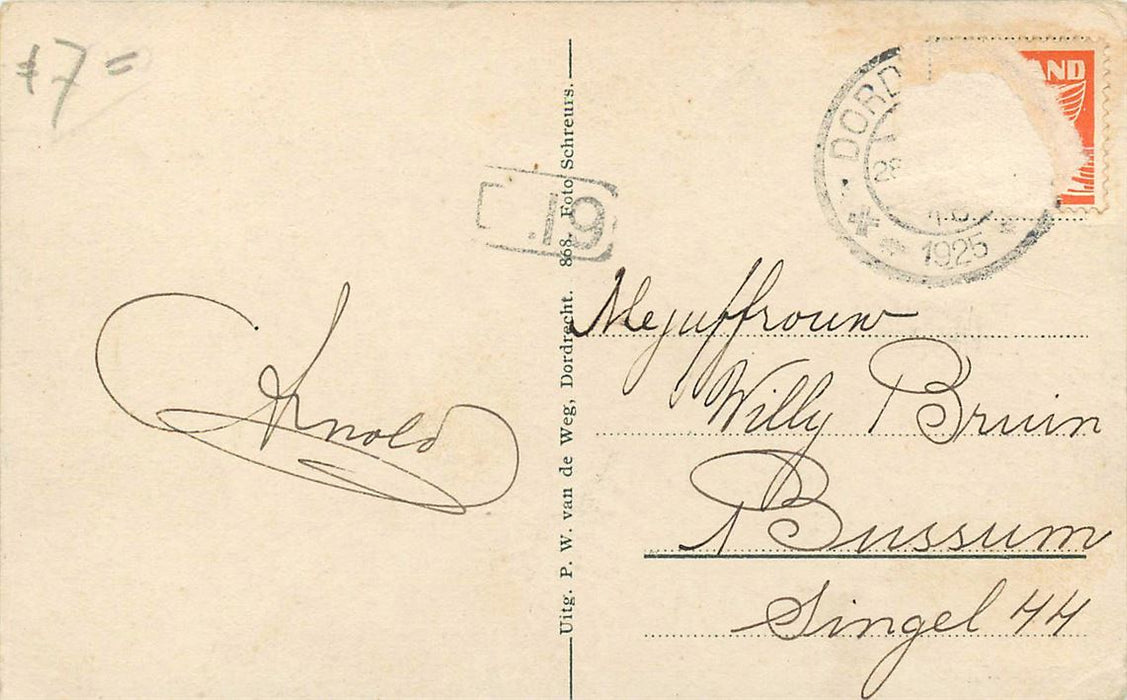 7=
Arnold
Uitg. P. W. van de Weg, Dordrecht. 868. Foto Schreurs.
19
DORD
28
1925
AND
Mejuffrouw
Willy Bruin
Bussum
Singel 44